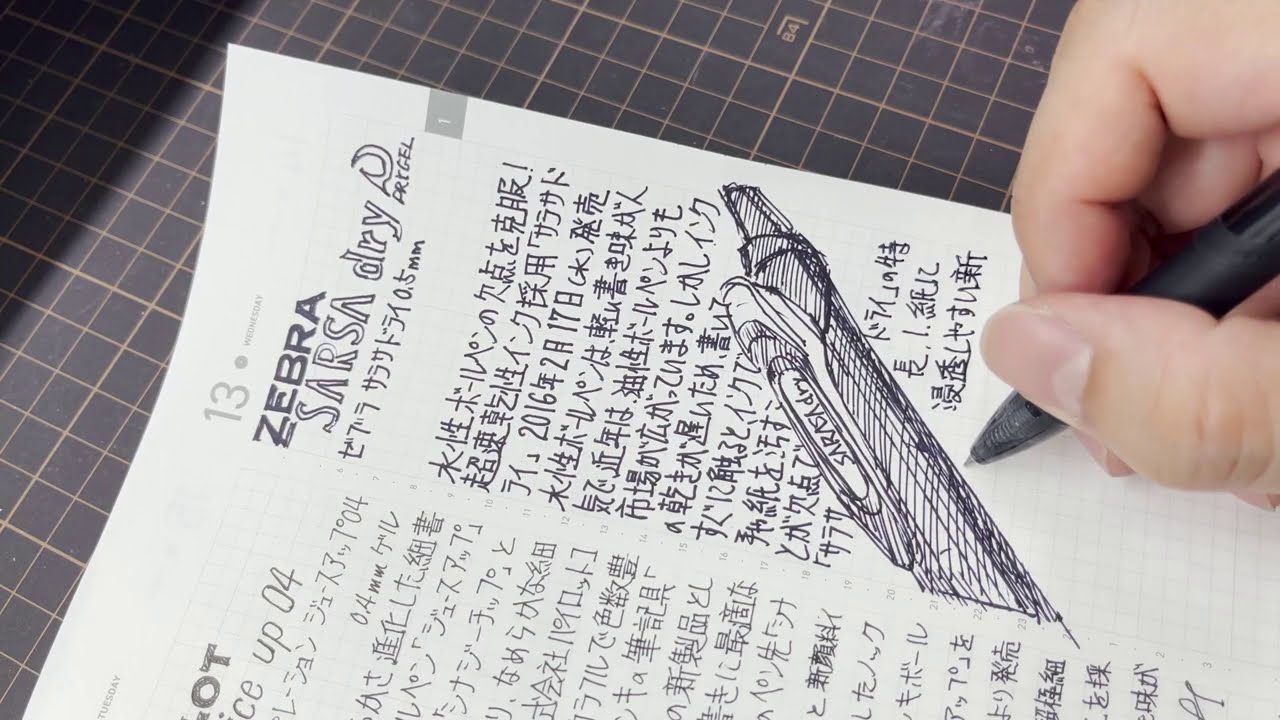 B4
1
13 • WEDNESDAY
ZEBRA
SARSA dry
DRYGEL
ゼブラ サラサドライ0.5mm
水性ボールペンの欠点を克服!
超速乾性インク採用「サラサド
ライ」2016年2月17日(水)発売
水性ボールペンは、軽い書き味が人
気で近年は油性ボールペンよりも
市場が広がっています。しかしインク
の乾きが遅いため、書いて
すぐに触るとインクで
手や紙を汚す
とが欠点で
「サラサ
ドライ」の特
長は、紙に
浸透しやすい新
SARASA dry
6
7
8
9
10
11
12
13
14
15
16
17
18
19
20
21
22
23
1
2
3
TUESDAY
OT
ice up 04
レーション ジュースアップ04
0.4mmゲル
らかさ進化した細書
ルペン「ジュースアップ」
シナジーチップ」と
り、なめらかな細
式会社パイロット
ラフルで色数豊
ンキの筆記具「
の新製品とし
書きに最適な
のペン先「シナ
と新顔料イ
したノック
キボール
アップ」を
より発売
超極細
を採
き味が